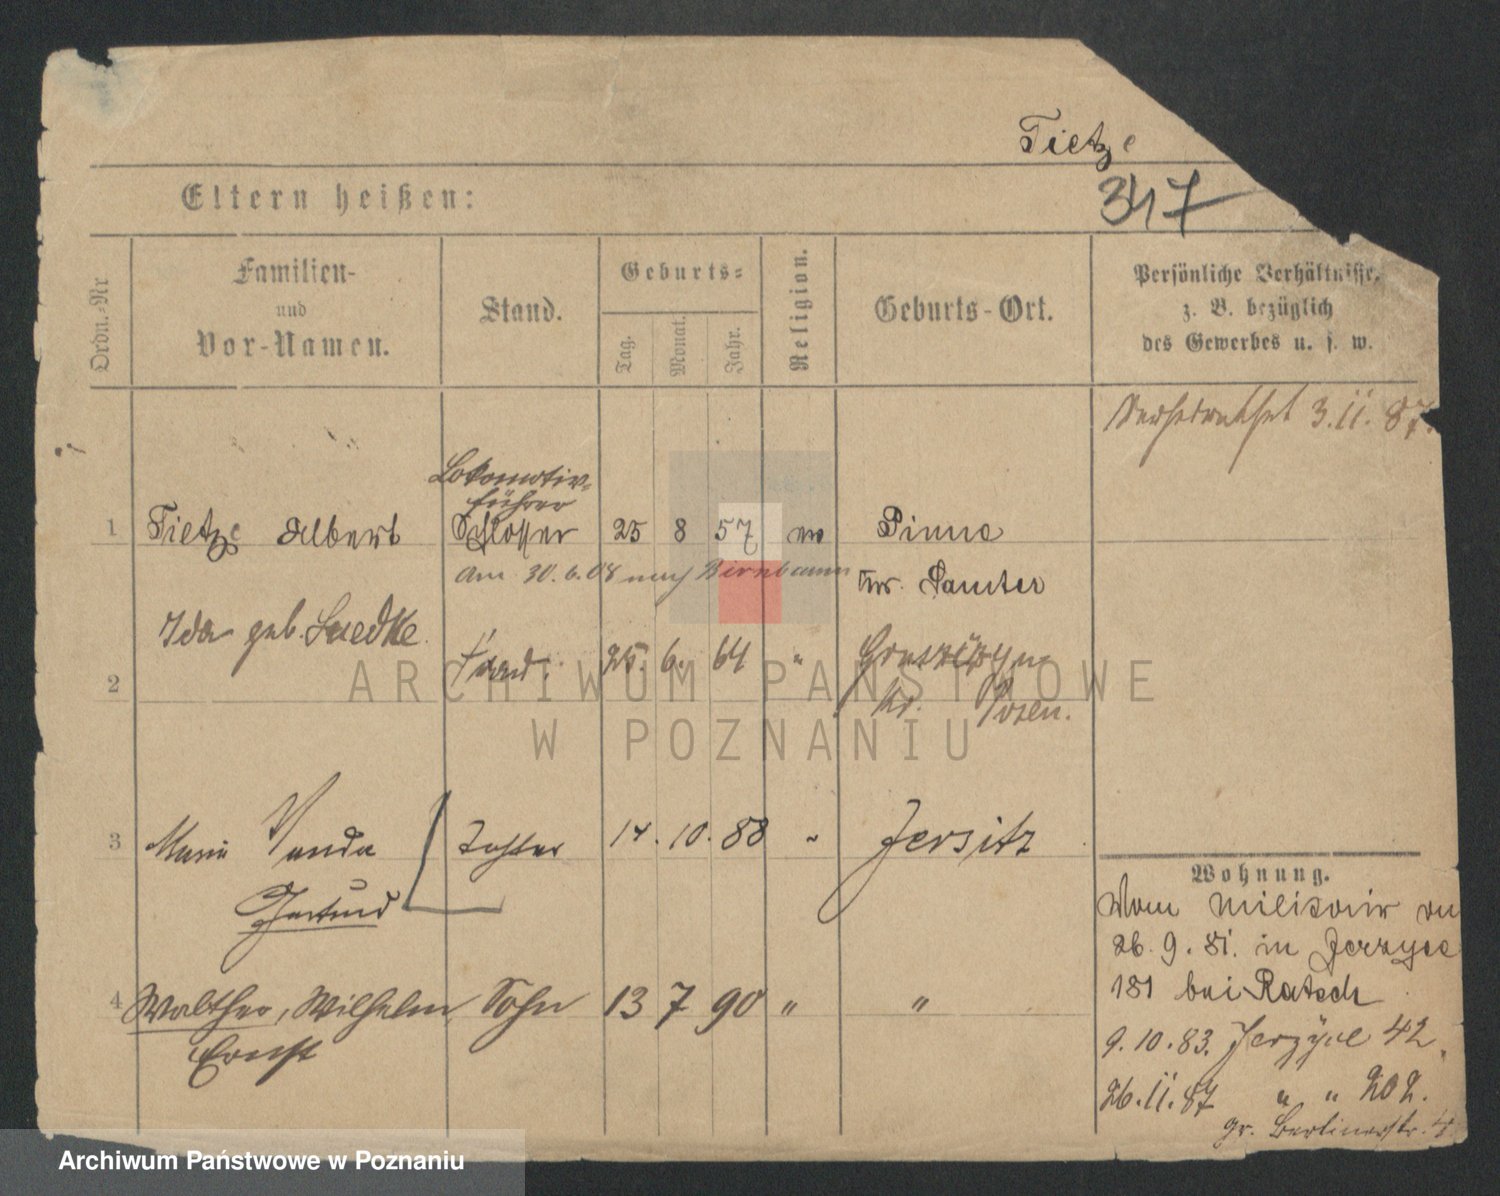 Tietze
347
Eltern heißen:
Ordn.-Nr
Familien-
und
Vor-Namen.
Stand.
Geburts-
Tag.
Monat.
Jahr.
Religion.
Geburts-Ort.
Persönliche Verhältnisse,
z. B. bezüglich
des Gewerbes u. s. w.
Verheirathet 3.11.87.
Lokomotiv-
führer
1 Tietze Albert Schlosser 25 8 57 ev Pinne
am 30.6.08 nach Birnbaum Kr. Samter
2 Ida geb. Luedke. Frau. 25. 6. 64 "
Kr. Posen.
3 Marie Wanda Tochter 14. 10. 88 " Jersitz
Gertrud
4 Walther, Wilhelm Sohn 13 7 90 " "
Ernst
Wohnung.
Vom Militair
26.9.81. in Jerzyce
181 bei Ratsch
9.10.83. Jerzyce 42.
26.11.87 " " 202.
gr. Berlinerstr.
ARCHIWUM PAŃSTWOWE
W POZNANIU
Archiwum Państwowe w Poznaniu